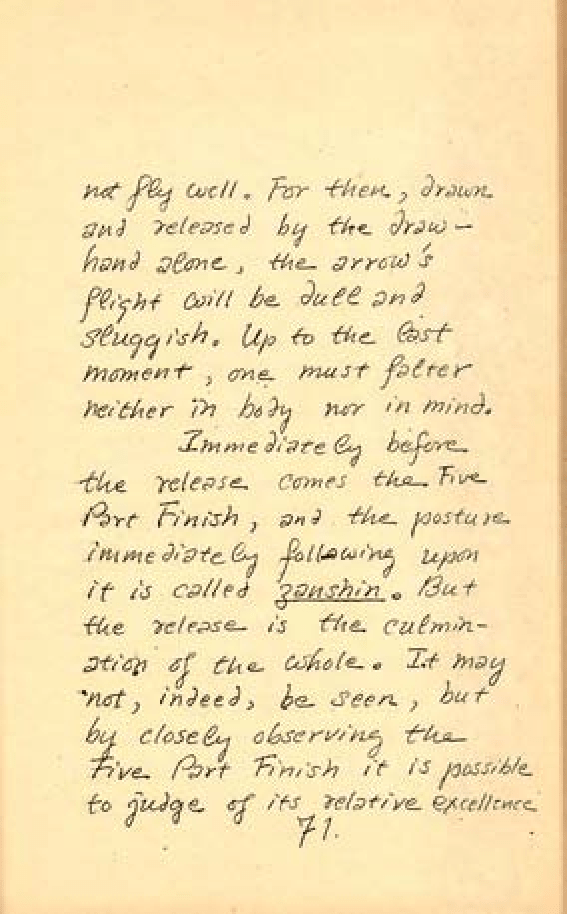 not fly well. For then, drawn
and released by the draw-
hand alone, the arrow's
flight will be dull and
sluggish. Up to the last
moment, one must falter
neither in body nor in mind.
Immediately before
the release comes the Five
Part Finish, and the posture
immediately following upon
it is called zanshin. But
the release is the culmin-
ation of the whole. It may
not, indeed, be seen, but
by closely observing the
Five Part Finish it is possible
to judge of its relative excellence
71.